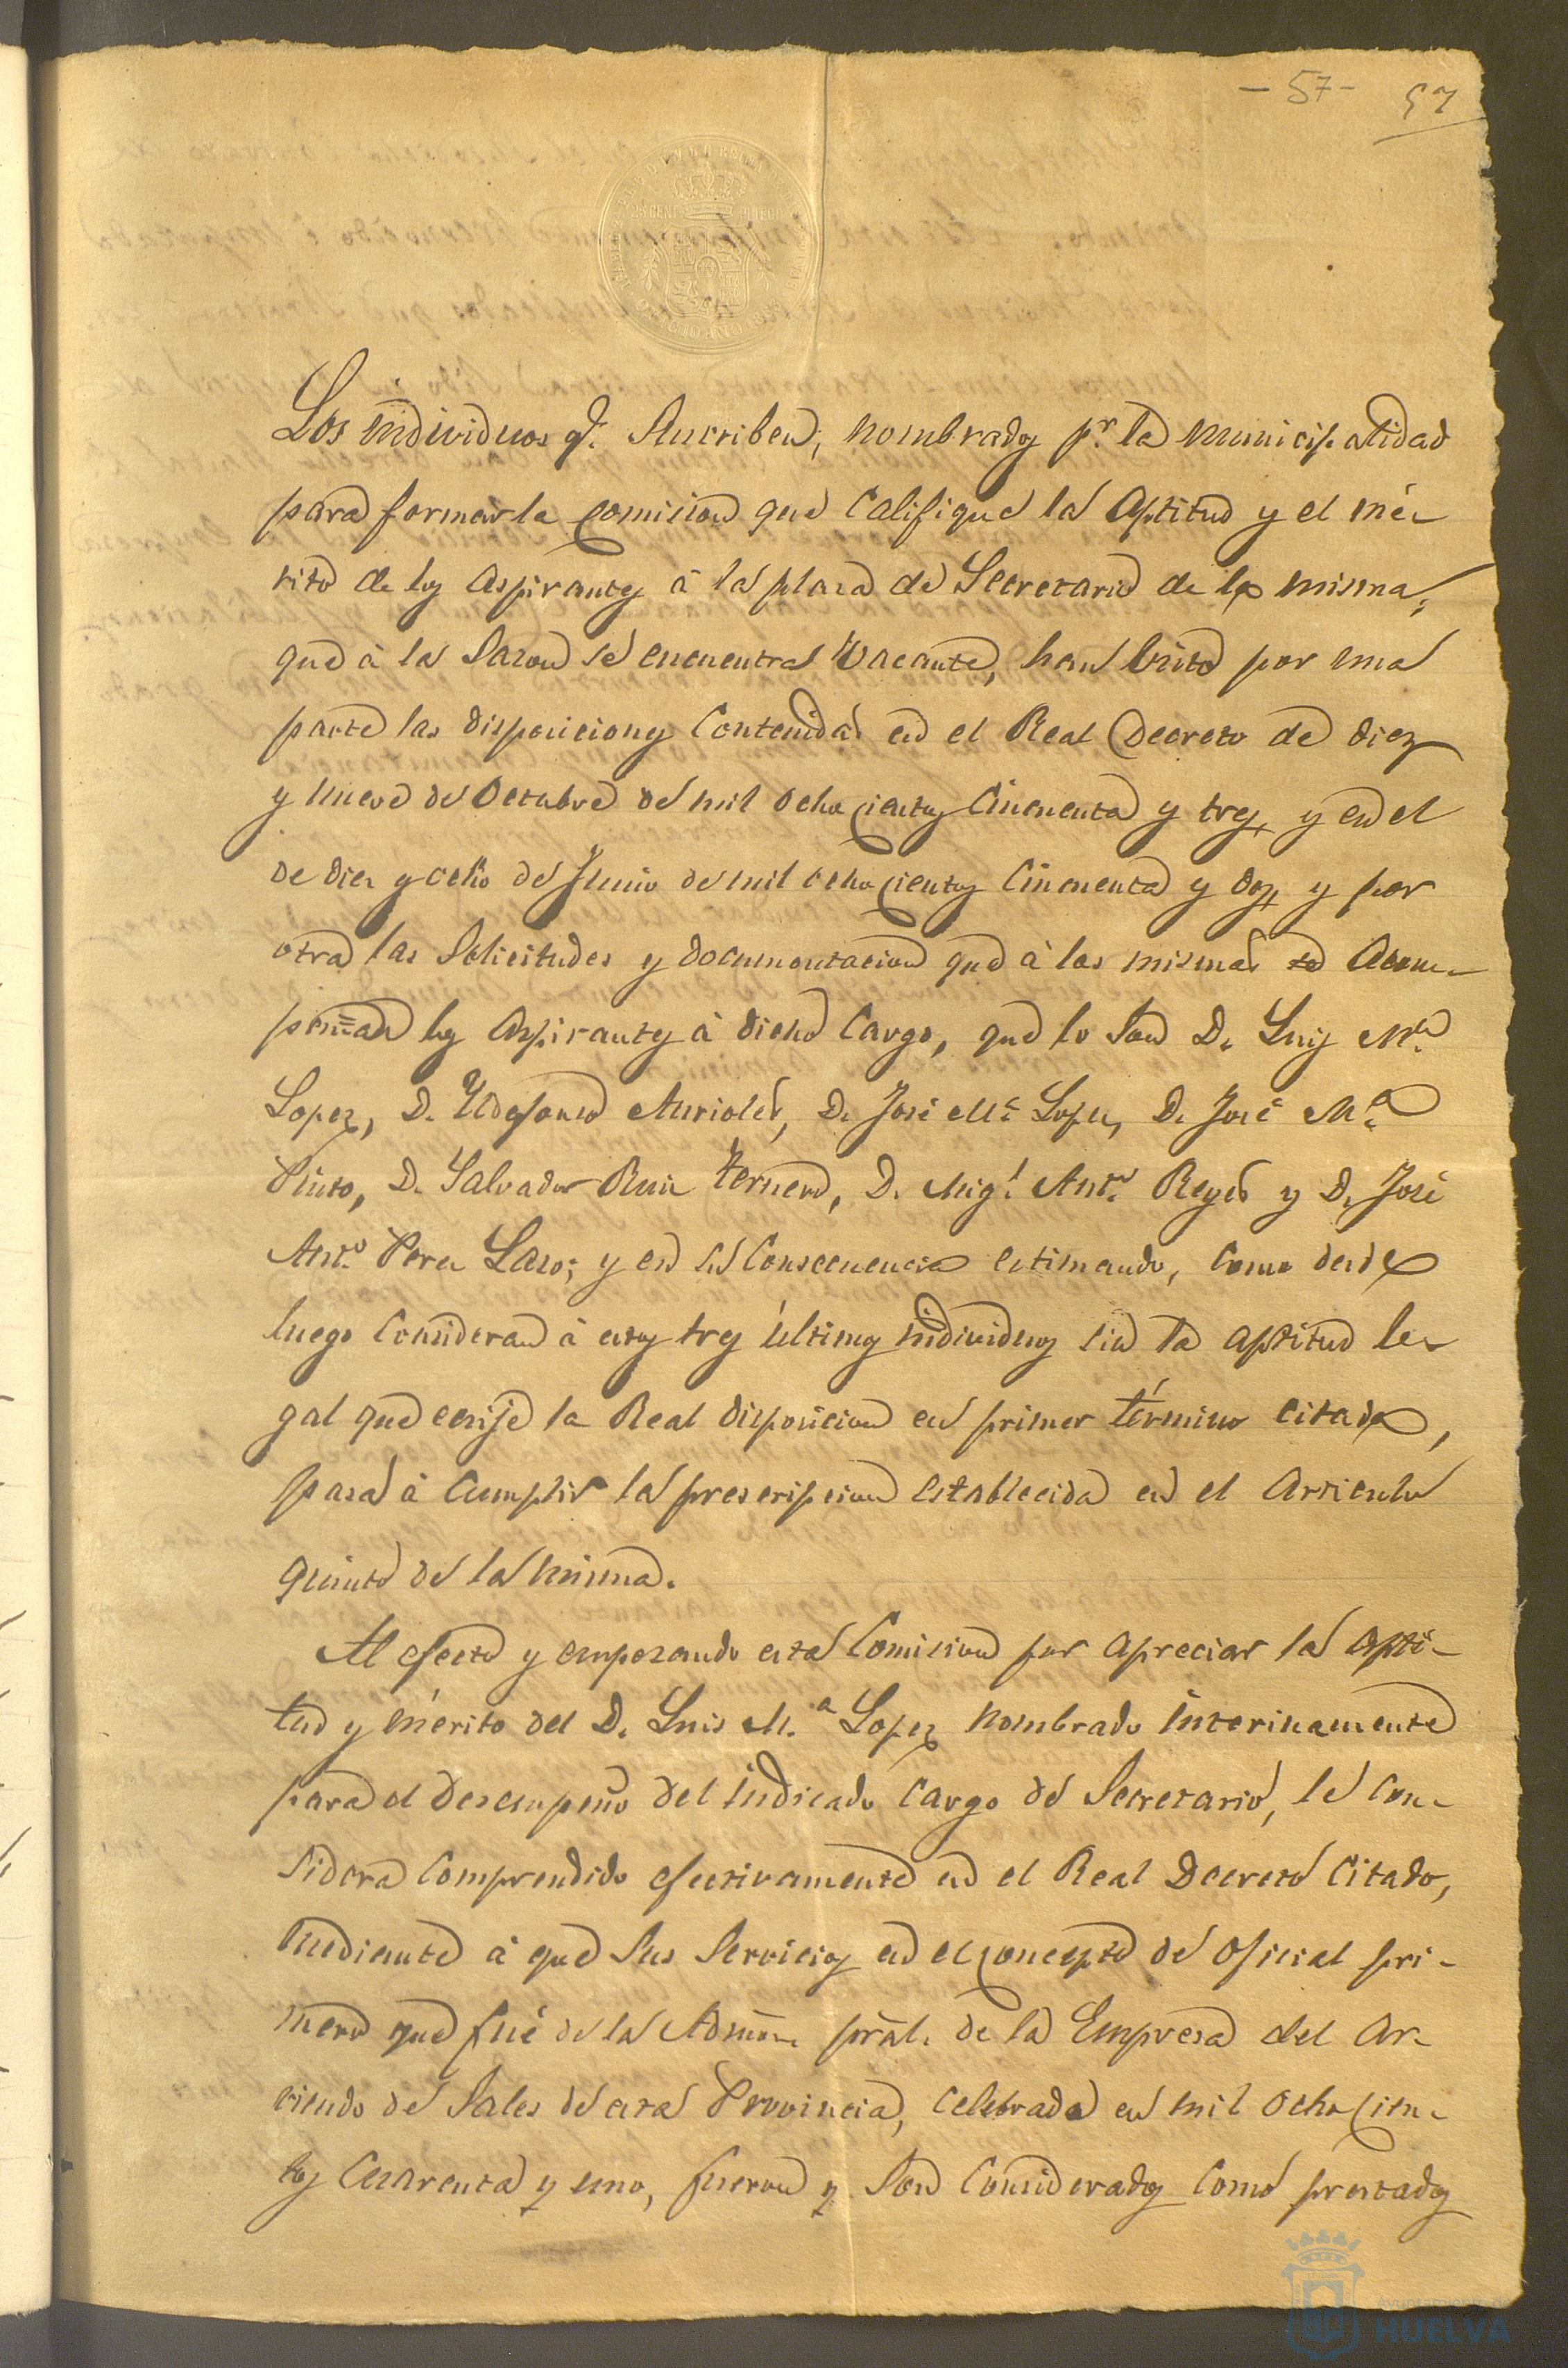 - 57 -
57
Los individuos q.e Suscriben, nombrados p.r la municipalidad
para formar la Comision que Califique la Aptitud y el mé-
rito de los Aspirantes á la plaza de Secretario de la misma,
que á la Sazon se encuentra Vacante, han visto por una
parte las disposiciones Contenidas en el Real Decreto de diez
y nueve de Octubre de mil ocho cientos Cincuenta y tres, y en el
de diez y ocho de Junio de mil ocho cientos Cincuenta y dos, y por
otra las Solicitudes y documentacion que á las mismas Acom-
pañan los Aspirantes á dicho Cargo, que lo Son D. Luis M.a
Lopez, D. Ildefonso Aurioles, D. José M.a Lopez, D. José M.a
Pinto, D. Salvador Ruiz Ternero, D. Mig.l Ant.o Reyes y D. José
Ant.o Perez Lazo; y en su Consecuencia estimando, Como desde
luego Consideran á estos tres últimos individuos sin la aptitud le-
gal que ecsije la Real disposicion en primer término citada,
pasa á Cumplir la prescripcion establecida en el Articulo
quinto de la misma.
Al efecto y empezando esta Comision por Apreciar la Apti-
tud y mérito del D. Luis M.a Lopez nombrado interinamente
para el desempeño del indicado Cargo de Secretario, le Con-
sidera Comprendido efectivamente en el Real Decreto Citado,
mediante á que Sus Servicios en el Concepto de oficial pri-
mero que fué de la Admon. pral. de la Empresa del Ar-
riendo de Sales de esta Provincia, Celebrada en mil ocho Cien-
tos Cuarenta y uno, fueron y Son Considerados Como prestados
HUELVA